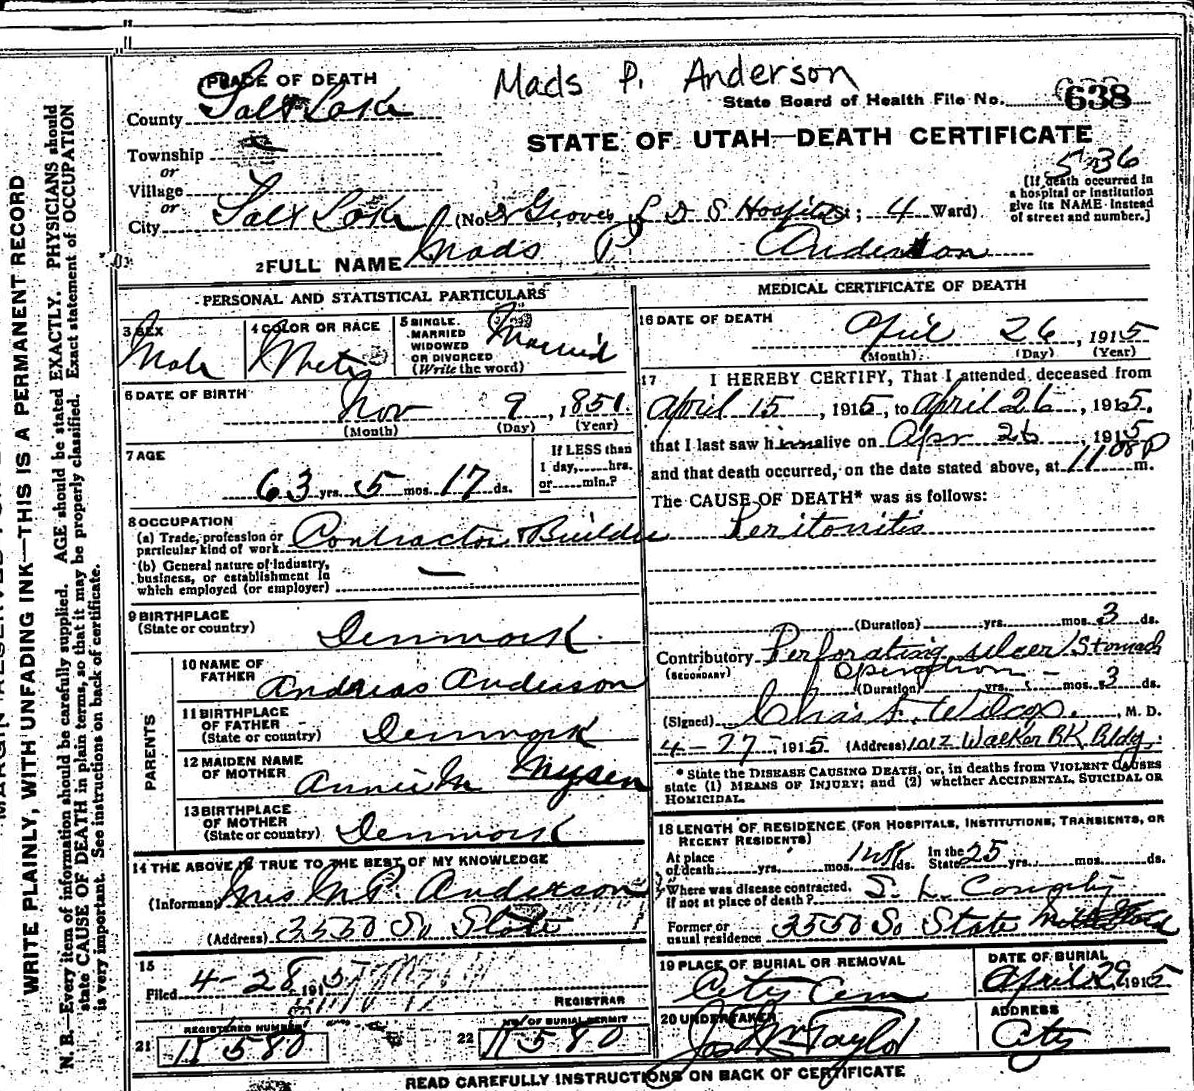 Mads P. Anderson
PLACE OF DEATH
State Board of Health File No. 638
County Salt Lake
STATE OF UTAH—DEATH CERTIFICATE
Township
or
Village
or
City Salt Lake (No. Groves L D S Hospital St; 4 Ward)
536
[If death occurred in
a hospital or institution
give its NAME instead
of street and number.]
2 FULL NAME Mads P. Anderson
PERSONAL AND STATISTICAL PARTICULARS
3 SEX
Male
4 COLOR OR RACE
White
5 SINGLE.
MARRIED
WIDOWED
OR DIVORCED
(Write the word)
Married
6 DATE OF BIRTH
Nov 9, 1851
(Month) (Day) (Year)
7 AGE
63 yrs. 5 mos. 17 ds.
If LESS than
1 day,......hrs.
or......min.?
8 OCCUPATION
(a) Trade, profession or
particular kind of work Contractor & Builder
(b) General nature of industry,
business, or establishment in
which employed (or employer) —
9 BIRTHPLACE
(State or country) Denmark
PARENTS
10 NAME OF
FATHER Andreas Anderson
11 BIRTHPLACE
OF FATHER
(State or country) Denmark
12 MAIDEN NAME
OF MOTHER Annie M
13 BIRTHPLACE
OF MOTHER
(State or country) Denmark
14 THE ABOVE IS TRUE TO THE BEST OF MY KNOWLEDGE
(Informant) Mrs M.P. Anderson
(Address) 3350 So State
15
Filed 4-28, 1915
REGISTRAR
REGISTERED NUMBER
21 580
NO. OF BURIAL PERMIT
22 580
MEDICAL CERTIFICATE OF DEATH
16 DATE OF DEATH
April 26, 1915
(Month) (Day) (Year)
17 I HEREBY CERTIFY, That I attended deceased from
April 15, 1915, to April 26, 1915.
that I last saw him alive on Apr 26, 1915
and that death occurred, on the date stated above, at 11 08 P m.
The CAUSE OF DEATH* was as follows:
Peritonitis
(Duration) yrs. mos. 3 ds.
Contributory Perforating ulcer/Stomach
(SECONDARY) operation
(Duration) yrs. - mos. 3 ds.
(Signed) Chas F. Wilcox, M. D.
4-27-1915 (Address) 1012 Walker BK. Bldg.
* State the DISEASE CAUSING DEATH, or, in deaths from VIOLENT CAUSES
state (1) MEANS OF INJURY; and (2) whether ACCIDENTAL, SUICIDAL OR
HOMICIDAL.
18 LENGTH OF RESIDENCE (FOR HOSPITALS, INSTITUTIONS, TRANSIENTS, OR
RECENT RESIDENTS)
At place
of death yrs. mos. ds. In the
State 25 yrs. mos. ds.
Where was disease contracted,
If not at place of death? S. L. County
Former or
usual residence 3550 So State
19 PLACE OF BURIAL OR REMOVAL
City Cem
DATE OF BURIAL
April 29, 1915
20 UNDERTAKER
Jos Wm Taylor
ADDRESS
City
READ CAREFULLY INSTRUCTIONS ON BACK OF CERTIFICATE
WRITE PLAINLY, WITH UNFADING INK—THIS IS A PERMANENT RECORD
N. B.—Every item of information should be carefully supplied. AGE should be stated EXACTLY. PHYSICIANS should
state CAUSE OF DEATH in plain terms, so that it may be properly classified. Exact statement of OCCUPATION
is very important. See instructions on back of certificate.